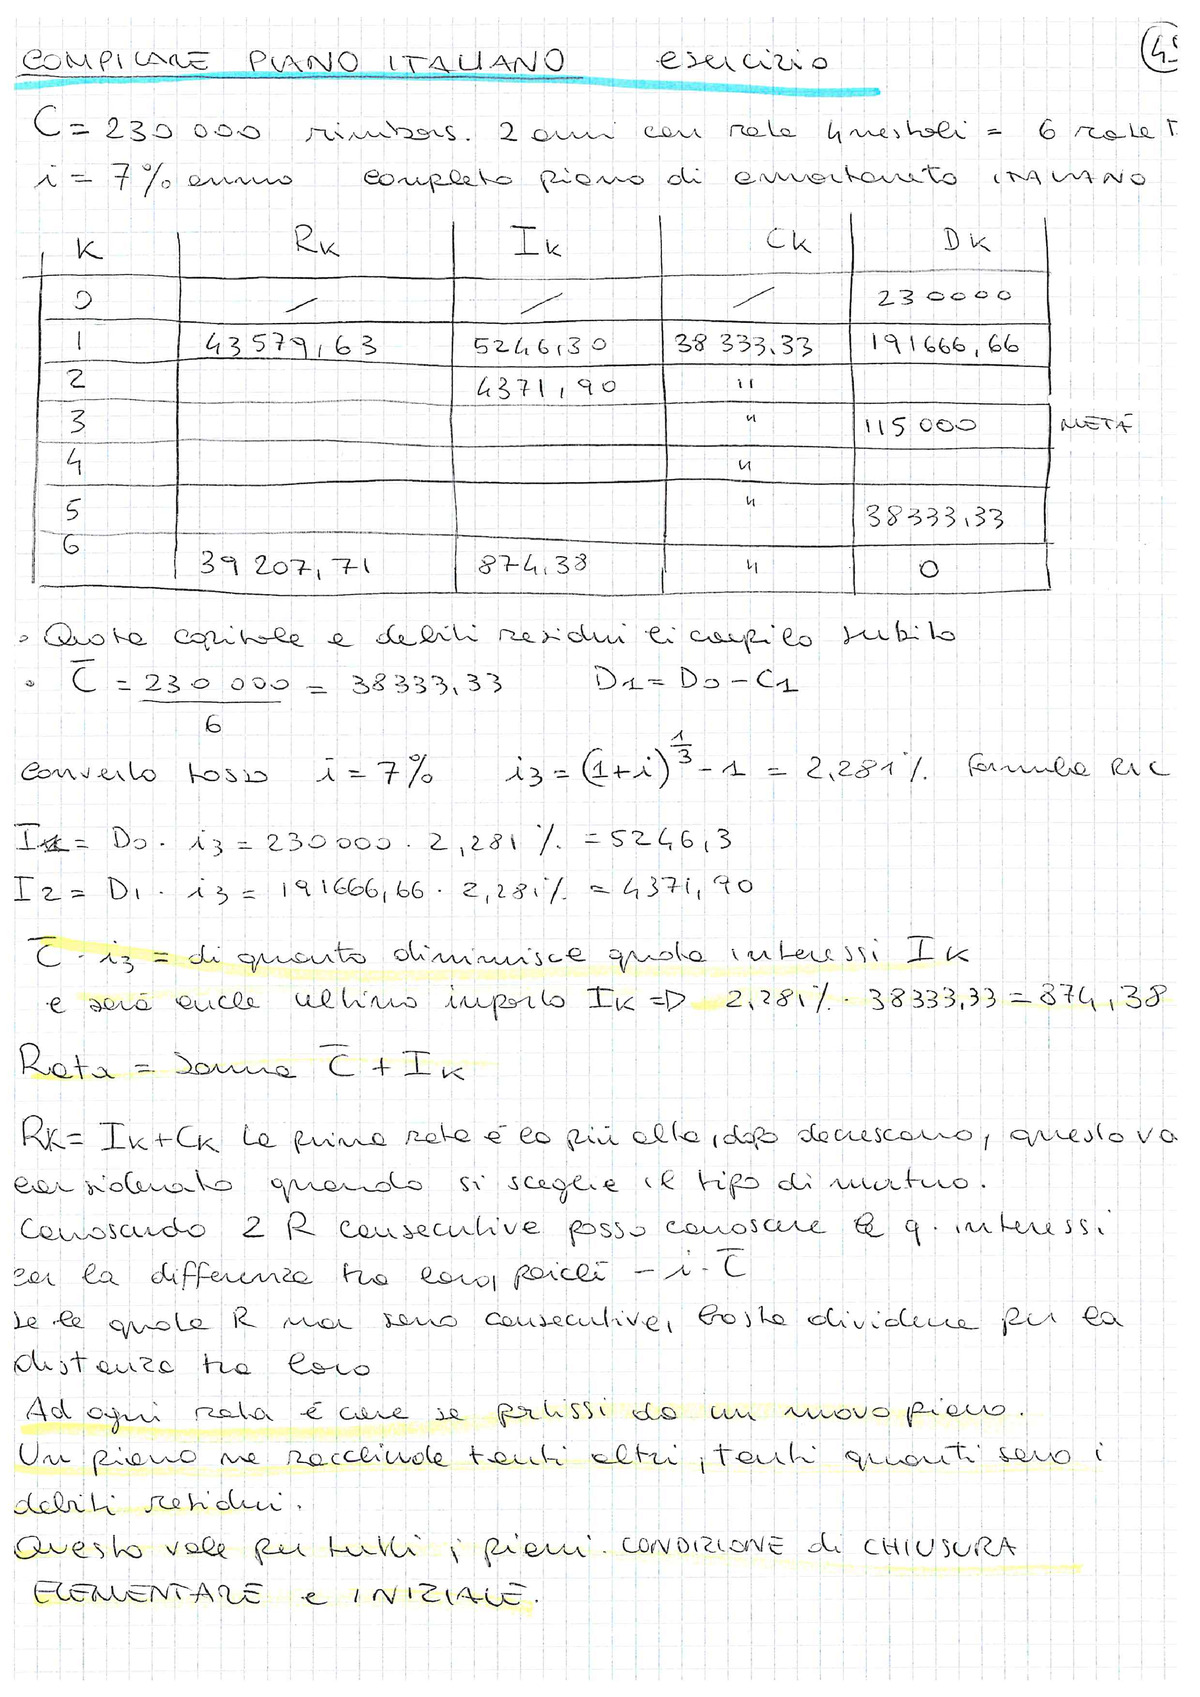 COMPILARE PIANO ITALIANO esercizio
C = 230 000 rimbors. 2 anni con rate 4mestrali = 6 rate
i = 7% annuo completo piano di ammortamento ITALIANO
K RK IK CK DK
0 / / / 230000
1 43579,63 5246,30 38 333,33 191666,66
2 4371,90 "
3 " 115 000 METÀ
4 "
5 " 38333,33
6 39 207,71 874,38 " 0
• Quota capitale e debiti residui li compilo subito
• C̅ = 230 000 / 6 = 38333,33 D1 = D0 - C1
converto tasso i = 7% i3 = (1+i)^1/3 - 1 = 2,281% formula RIC
I1 = D0 · i3 = 230000 · 2,281% = 5246,3
I2 = D1 · i3 = 191666,66 · 2,281% = 4371,90
C̅ · i3 = di quanto diminuisce quota interessi IK
e sarà anche ultimo importo IK => 2,281% · 38333,33 = 874,38
Rata = somma C̅ + IK
RK = IK + CK la prima rata è la più alta, dopo decrescono, questo va
considerato quando si sceglie il tipo di mutuo.
Conoscendo 2 R consecutive posso conoscere le q. interessi
con la differenza tra loro, poiché - i · C̅
se le quote R non sono consecutive, basta dividere per la
distanza tra loro
Ad ogni rata è come se partissi da un nuovo piano.
Un piano ne racchiude tanti altri, tanti quanti sono i
debiti residui.
Questo vale per tutti i piani. CONDIZIONE di CHIUSURA
ELEMENTARE e INIZIALE.